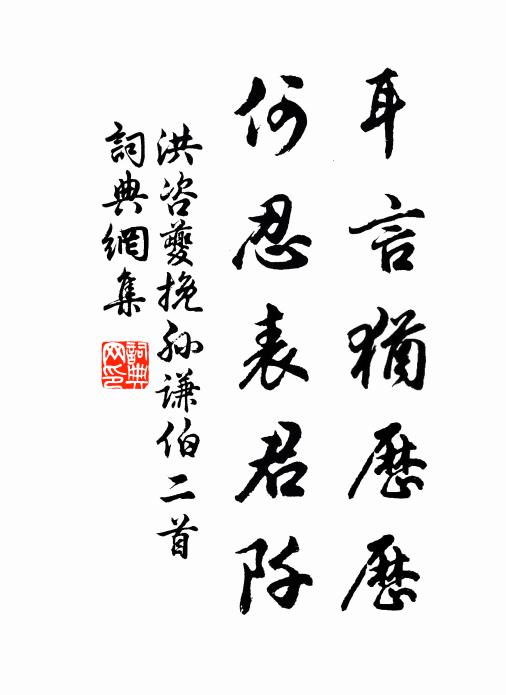 耳言猶歷歷
何忍表君阡
洪咨夔挽孫謙伯二首
詞典網集
詞典
网印